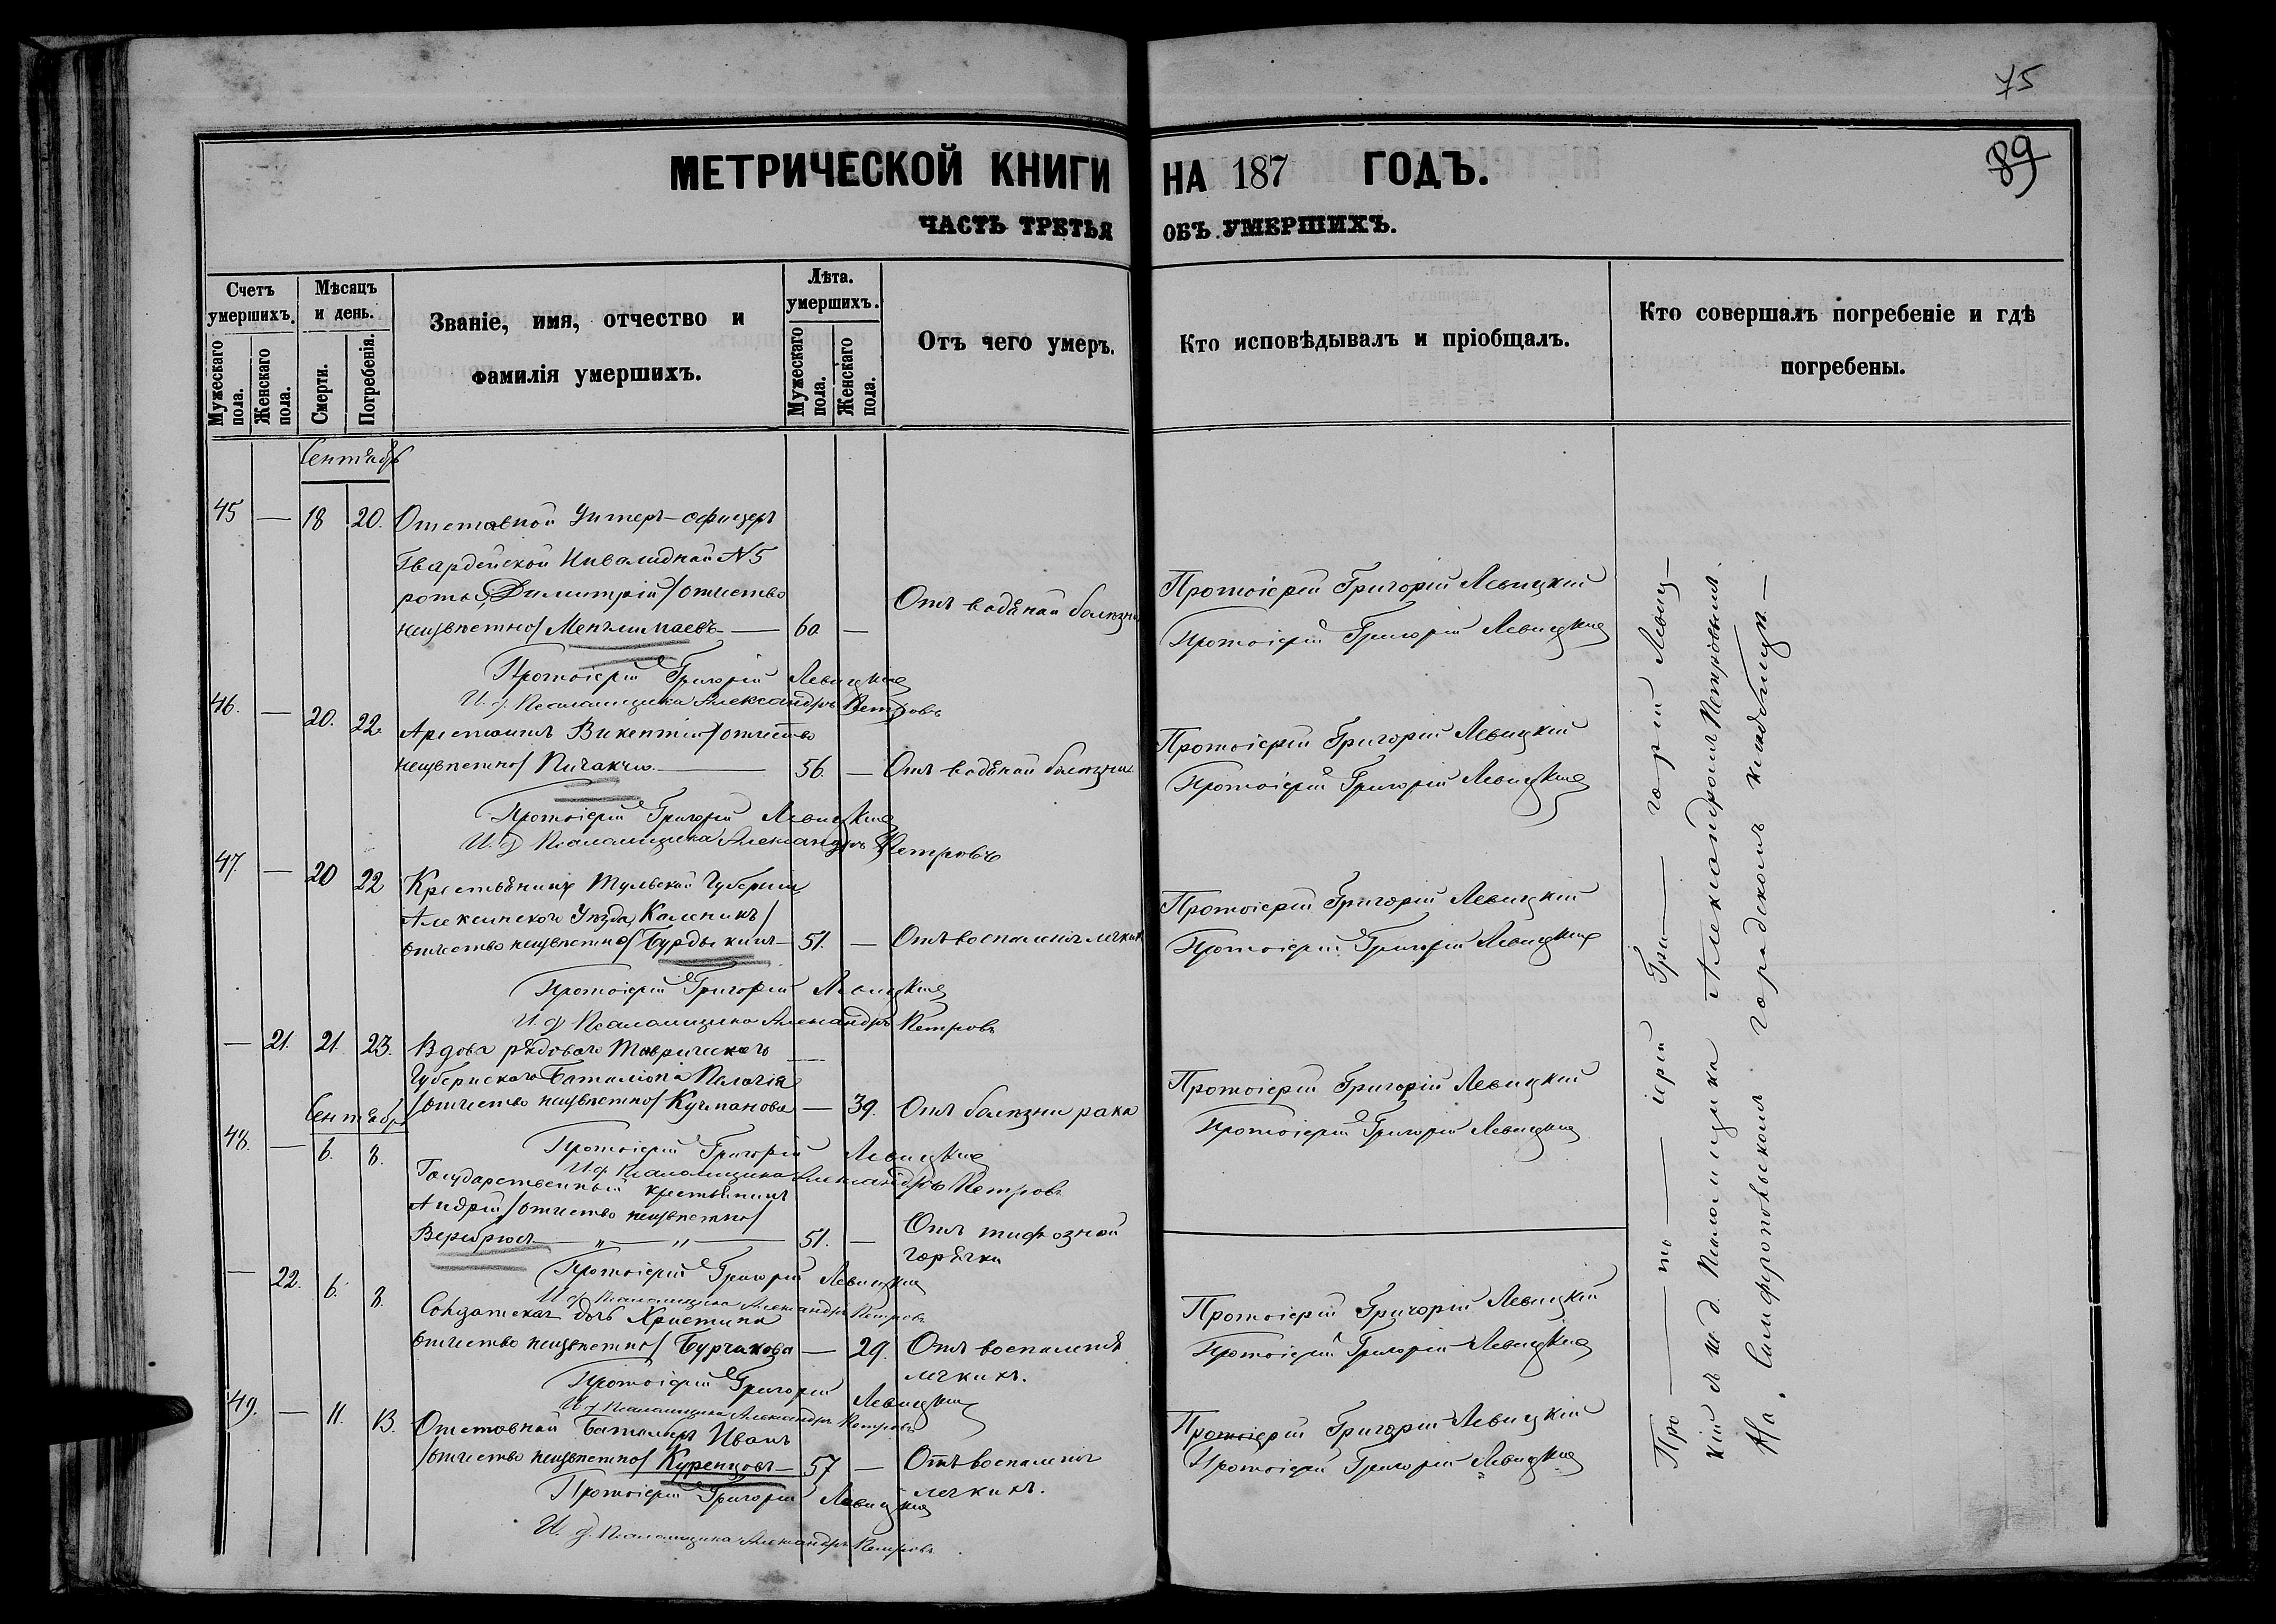 75
89
МЕТРИЧЕСКОЙ КНИГИ НА 187 ГОДЪ.
ЧАСТЬ ТРЕТЬЯ ОБЪ УМЕРШИХЪ.
Счетъ умершихъ.
Мужескаго пола.
Женскаго пола.
Мѣсяцъ и день.
Смерти.
Погребенія.
Званіе, имя, отчество и
фамилія умершихъ.
Лѣта. умершихъ.
Мужескаго пола.
Женскаго пола.
Отъ чего умеръ.
Кто исповѣдывалъ и пріобщалъ.
Кто совершалъ погребеніе и гдѣ
погребены.
Сентябрь
45 — 18 20. Отставной Унтеръ-офицеръ
Гвардейской Инвалидной №5
роты Димитрій /отчество
неизвѣстно/ — 60 — Отъ водяной болѣзни
Протоіерей Григорій Левицкій
Протоіерей Григорій Левицкій
Протоіерей Григорій Левицкій
И. д. Псаломщика Александръ Петровъ
46. — 20. 22. Арестантъ Викентій /отчество
неизвѣстно/ — 56. — Отъ водяной болѣзни
Протоіерей Григорій Левицкій
Протоіерей Григорій Левицкій
Протоіерей Григорій Левицкій
И. д. Псаломщика Александръ Петровъ
47. — 20 22 Крестьянинъ Тульской Губерніи
Алексинскаго Уѣзда, Каленикъ /
отчество неизвѣстно/ Бурдыкинъ — 51. — Отъ воспаленія легкихъ
Протоіерей Григорій Левицкій
Протоіерей Григорій Левицкій
Протоіерей Григорій Левицкій
И. д. Псаломщика Александръ Петровъ
— 21. 21. 23. Вдова рядоваго Таврическаго
Губернскаго Баталіона Пелагія
/отчество неизвѣстно/ — 39. Отъ болѣзни рака
Протоіерей Григорій Левицкій
Протоіерей Григорій Левицкій
Сентябрь
Протоіерей Григорій Левицкій
И. д. Псаломщика Александръ Петровъ
48. — 6. 8. Государственный крестьянинъ
Андрей /отчество неизвѣстно/
— „ — „ — 51. — Отъ тифозной
горячки
Протоіерей Григорій Левицкій
И. д. Псаломщика Александръ Петровъ
— 22. 6. 8. Солдатская дочь Христина
отчество неизвѣстно/ Бурчакова — 29. Отъ воспаленія
легкихъ.
Протоіерей Григорій Левицкій
Протоіерей Григорій Левицкій
Протоіерей Григорій Левицкій
И. д. Псаломщика Александръ Петровъ
49. — 11. 13. Отставной Баталеръ Иванъ
/отчество неизвѣстно/ Куренцовъ — 57 — Отъ воспаленія
легкихъ.
Протоіерей Григорій Левицкій
Протоіерей Григорій Левицкій
Протоіерей Григорій Левицкій
И. д. Псаломщика Александръ Петровъ
Про — то — іерей Гри — горій Левиц-
кій съ и. д. Псаломщика Александромъ Петровымъ.
На Симферопольскомъ городскомъ кладбищѣ. —